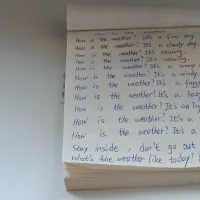 How is the weather? It's a fine day.
How is the weather? It's a cloudy day.
How is the weather? It's raining.
How is the weather? It's snowing.
How is the weather? It's a
How is the weather? It's a windy
How is the weather? It's a foggy
How is the weather? It's a haz
How is the weather? It's a
How is the weather? It's a
How is the weather? It's a
Stay inside, don't go out
What's the weather like today?